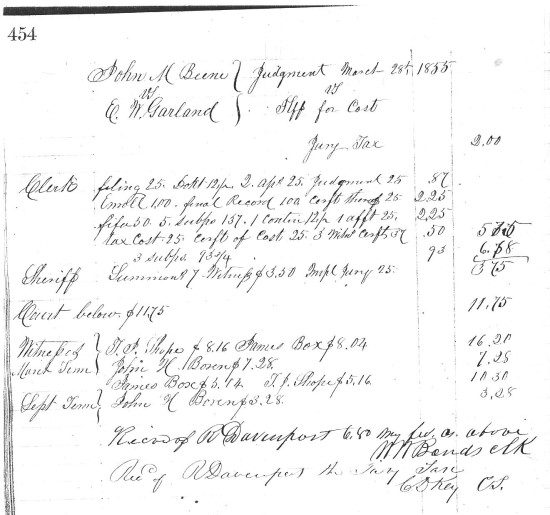 454
John M Beene } Judgment March 28th 1855
vs vs
E. W. Garland } Plff for Cost
Jury Tax 2.00
Clerk filing 25. Dokt 12½ 2. apl 25. Judgment 25 87
Enroll 100. final Record 100 Cerft thereof 25 2.25
fifa 50. 5. subpo 157. 1 Contin 12½ 1 afft 25. 2.25
tax Cost 25. Cerft of Cost 25. 3 Witns Cerfts 37 .50
3 subpo 93¾ 93 6.
Sheriff Summons 7 Witness $3.50 Impl Jury 25. 3 75
Court below. $11.75 11.75
Witnesses } T. J. Shope $8.16 James Box $8.04 16.20
March Term } John H. Boren $7.28. 7.28
James Box $5.14 T. J. Shope $5.16. 10 30
Sept Term } John H Boren $3.28. 3.28
of R Davenport 6.80 my fees as above
W W Bonds clk
Recd of R Davenport the Jury Tax
C D Key